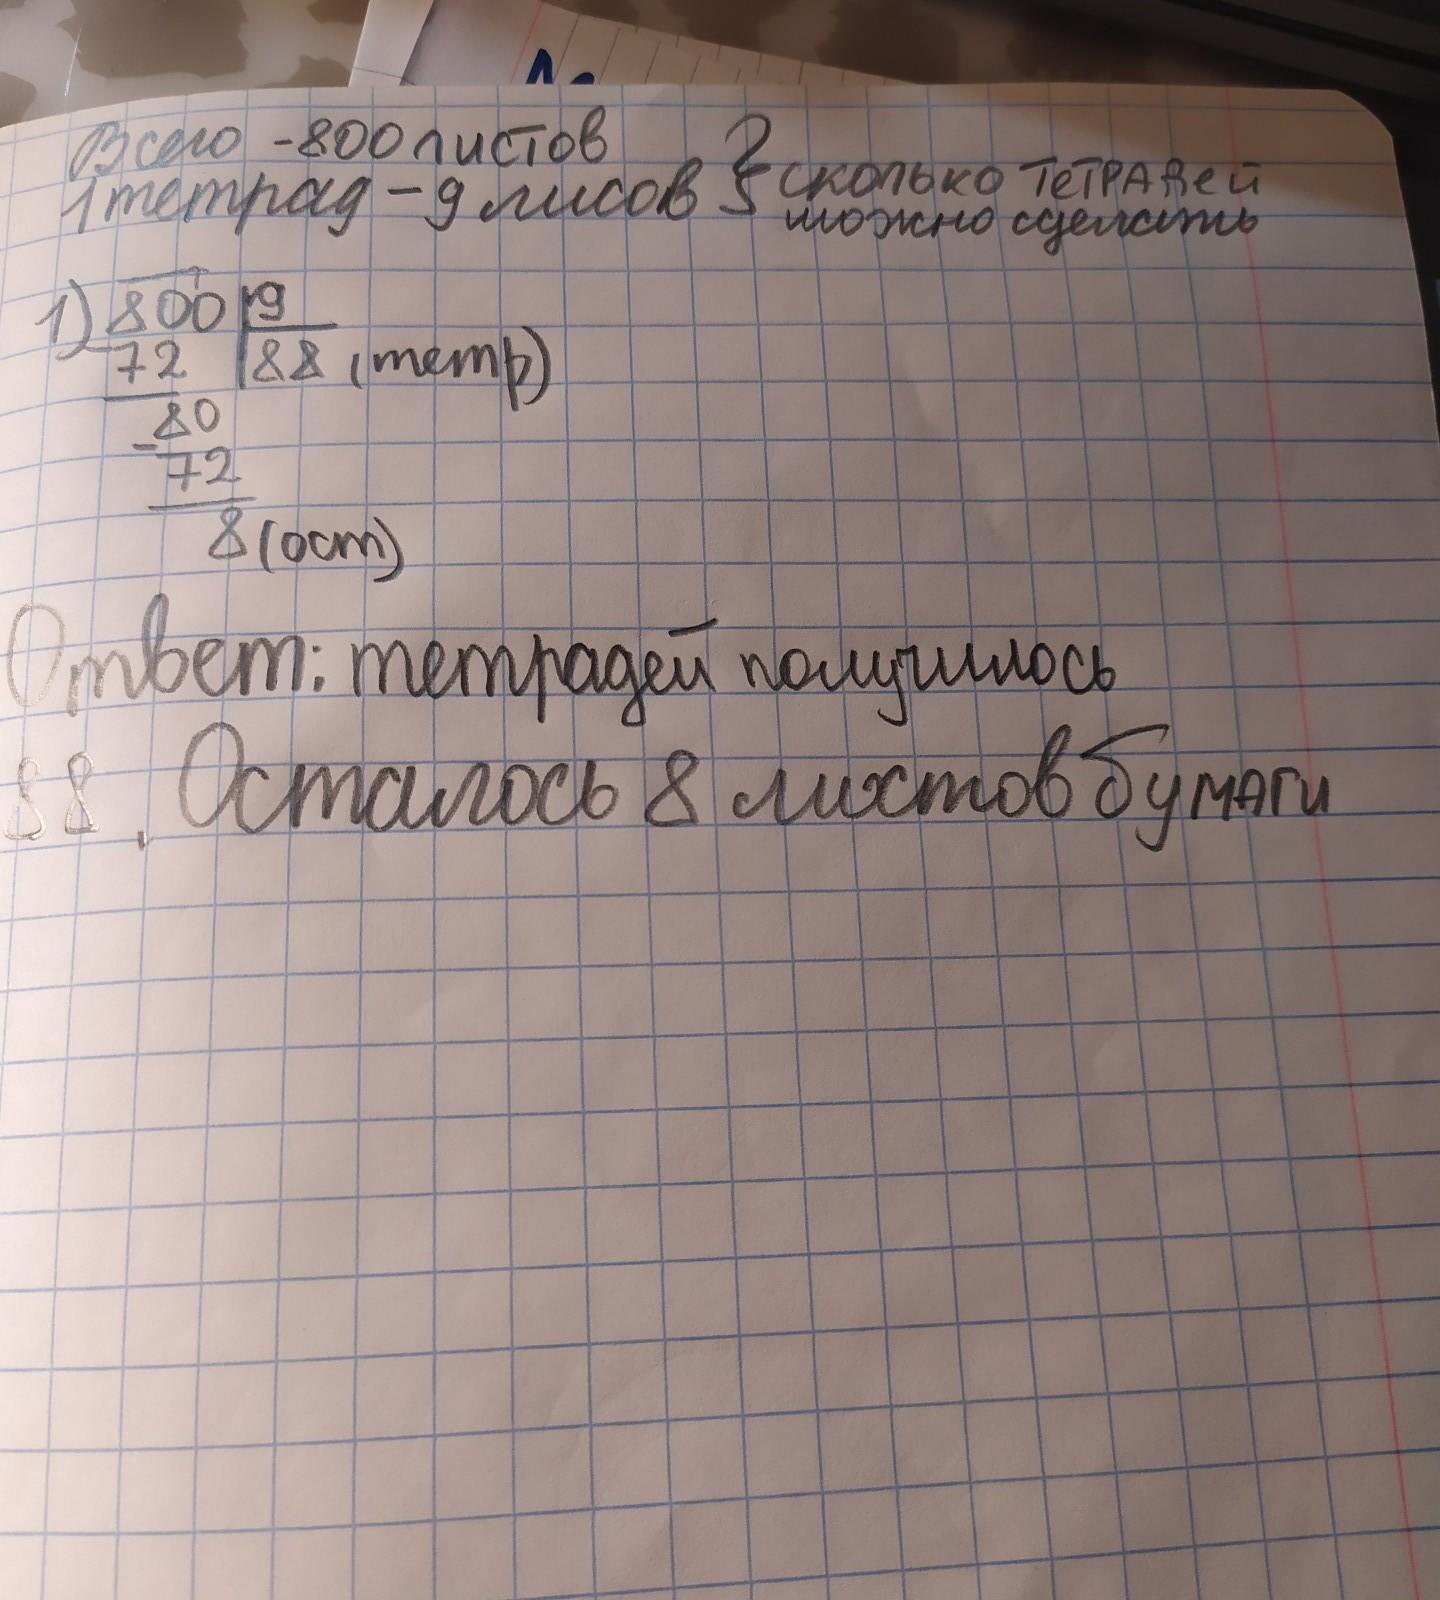 Всего - 800 листов
1 тетрад - 9 лисов } ? сколько тетрадей
можно сделать
1) 800 | 9
- 72 | 88 (тетр)
80
- 72
8 (ост)
Ответ: тетрадей получилось
88. Осталось 8 листов бумаги